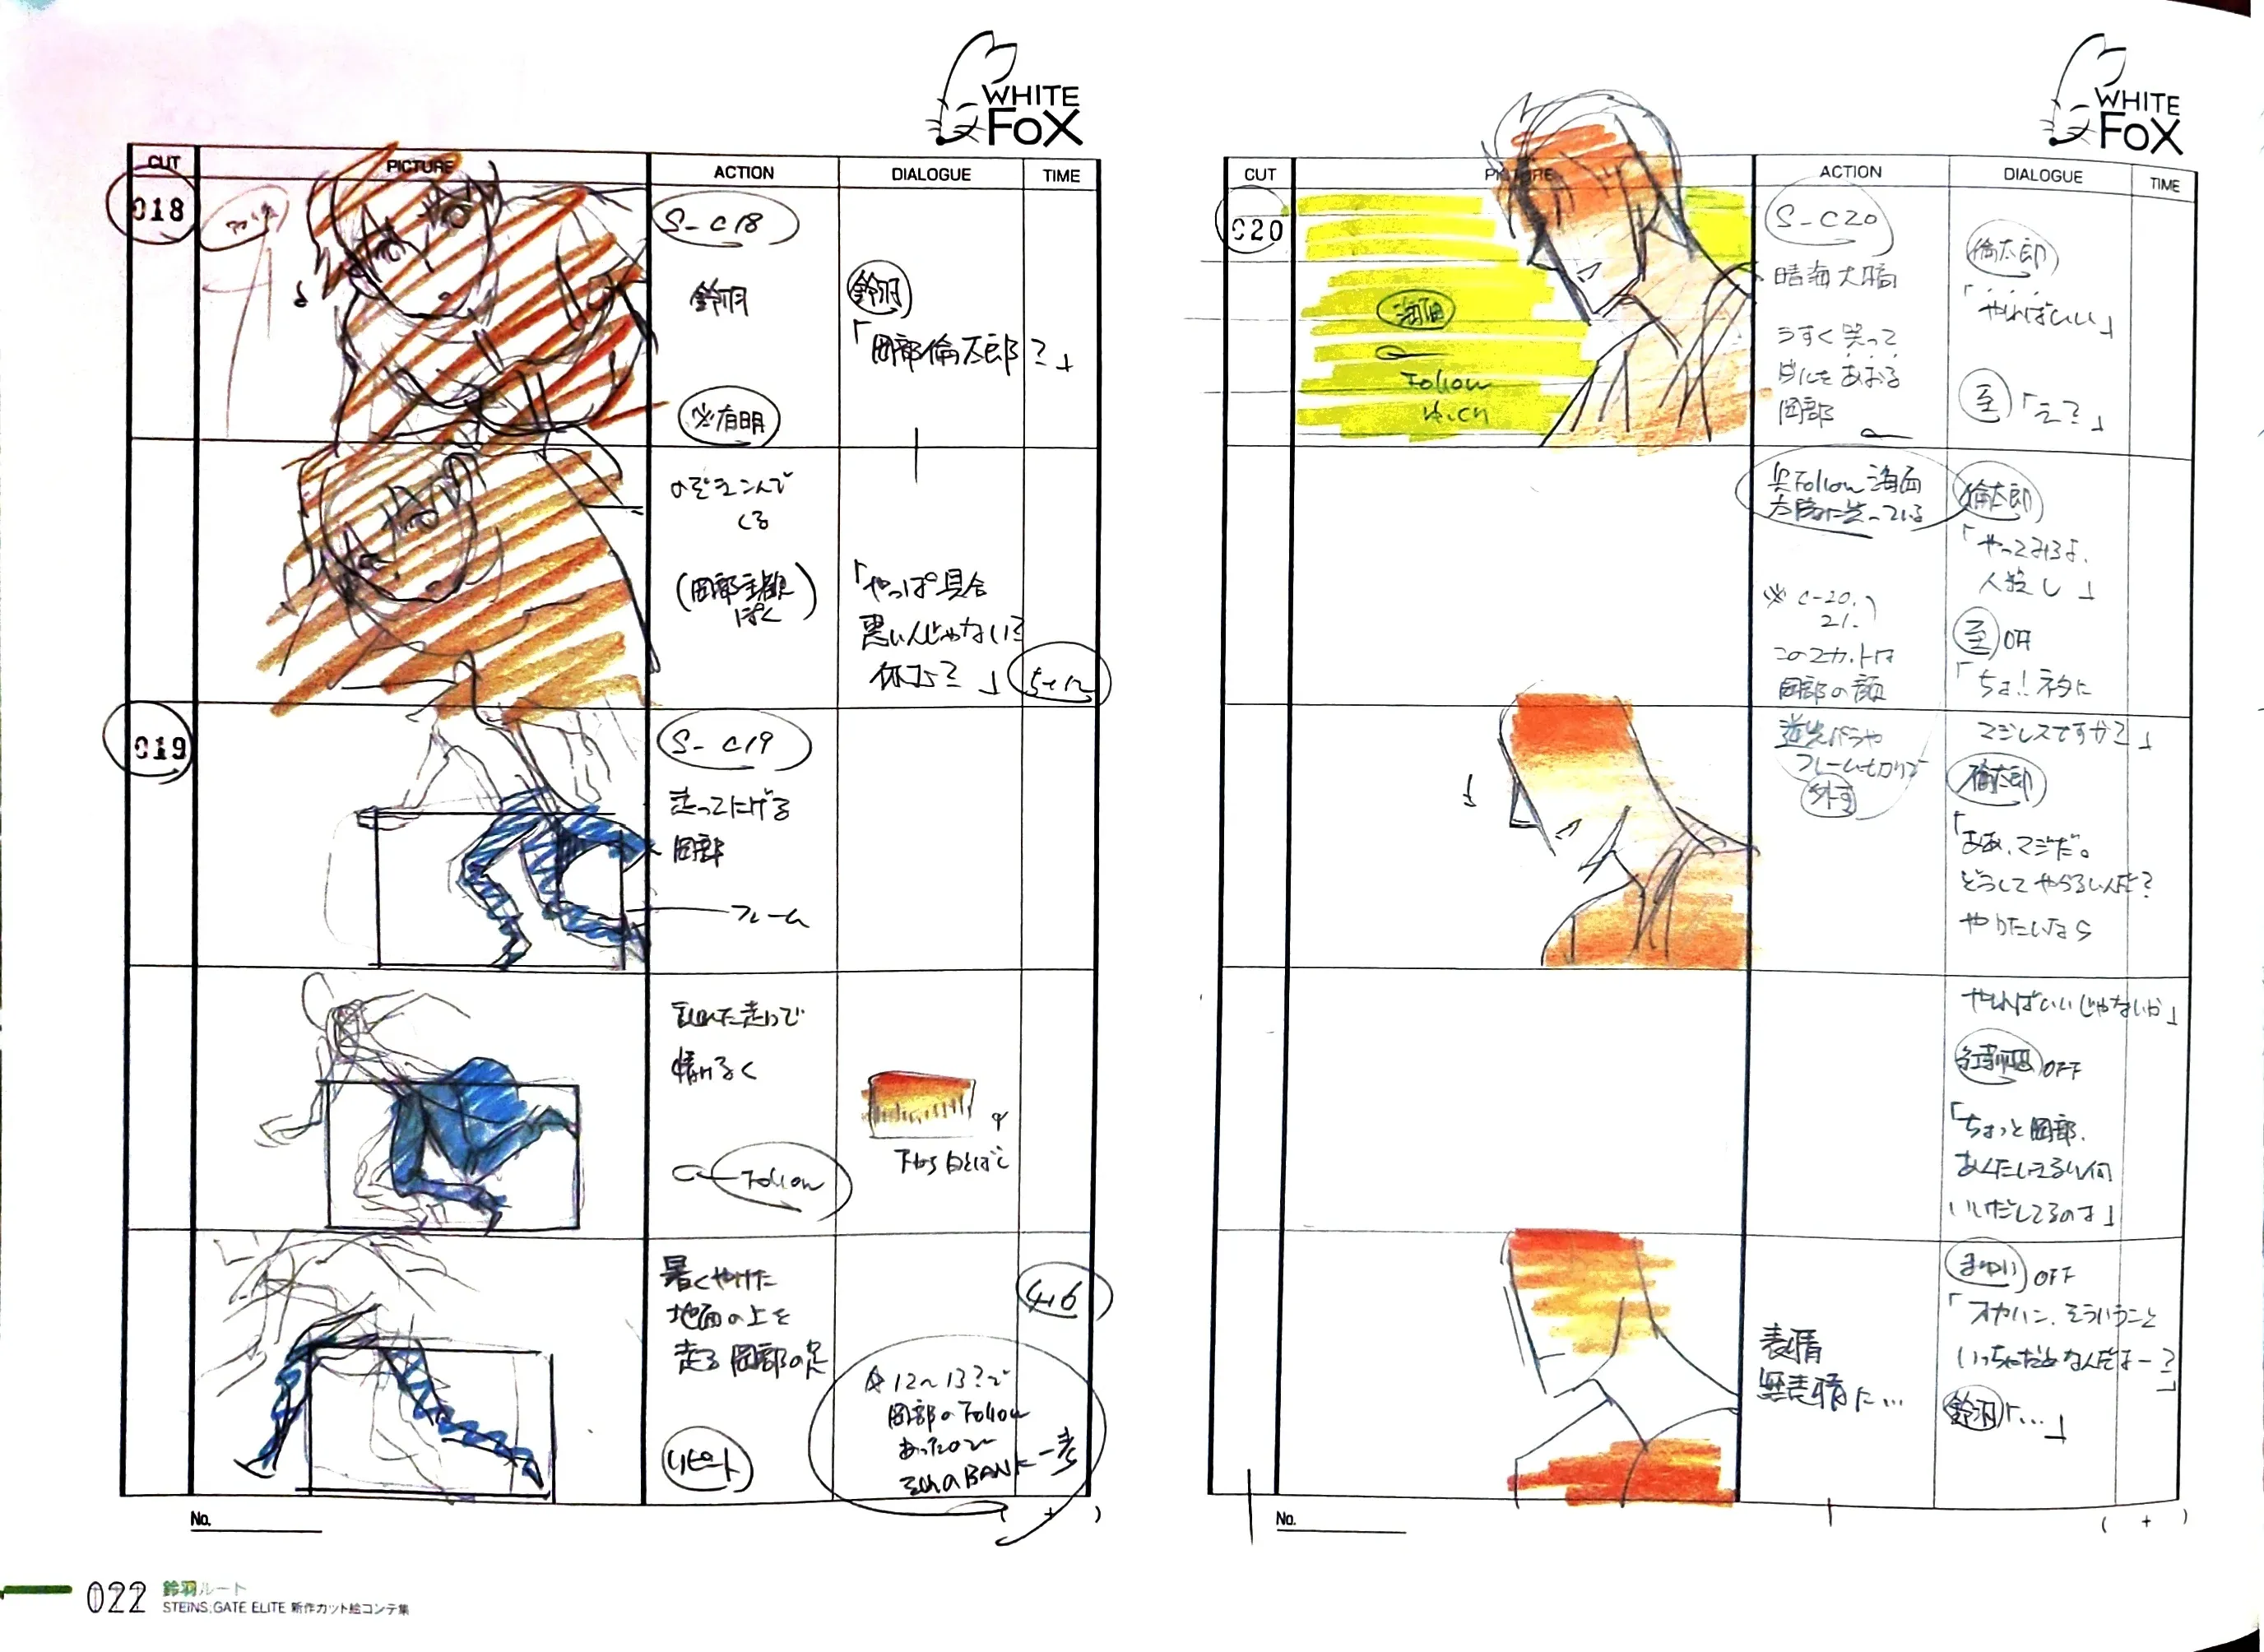 WHITE
FOX
CUT
PICTURE
ACTION
DIALOGUE
TIME
018
S-C18
鈴羽
※有明
鈴羽
「岡部倫太郎?」
のぞきこんで
くる
(岡部主観
ぽく)
「やっぱ具合
悪いんじゃない?
」
5+12
019
S-C19
走ってにげる
岡部
フレーム
乱れた走りで
情けなく
Follow
下から白とばし
暑くやけた
地面の上を
走る岡部の足
リピート
4+6
☆12~13?で
岡部のFollow
あったので
それのBANK一考
No.
( + )
022
鈴羽ルート
STEINS;GATE ELITE 新作カット絵コンテ集
WHITE
FOX
CUT
PICTURE
ACTION
DIALOGUE
TIME
020
海面
Follow
S-C20
晴海大橋
うすく笑って
ダルをあおる
岡部
倫太郎
「やればいい」
至「え?」
奥Follow海面
※C-20.
21.
この2カットは
岡部の顔
倫太郎
「やってみろよ、
人殺し」
至 OFF
「ちょ!!ネタに
逆光パラや
フレーム切りで
外す
マジレスですか?」
倫太郎
「ああ、マジだ。
どうしてやらないんだ?
やりたいなら
やればいいじゃないか」
紅莉栖 OFF
「ちょっと岡部、
あんたいきなり何
いいだしてるのよ」
表情
無表情に…
まゆり OFF
「オカリン、そういうこと
いっちゃだめなんだよー?」
鈴羽「…」
No.
( + )